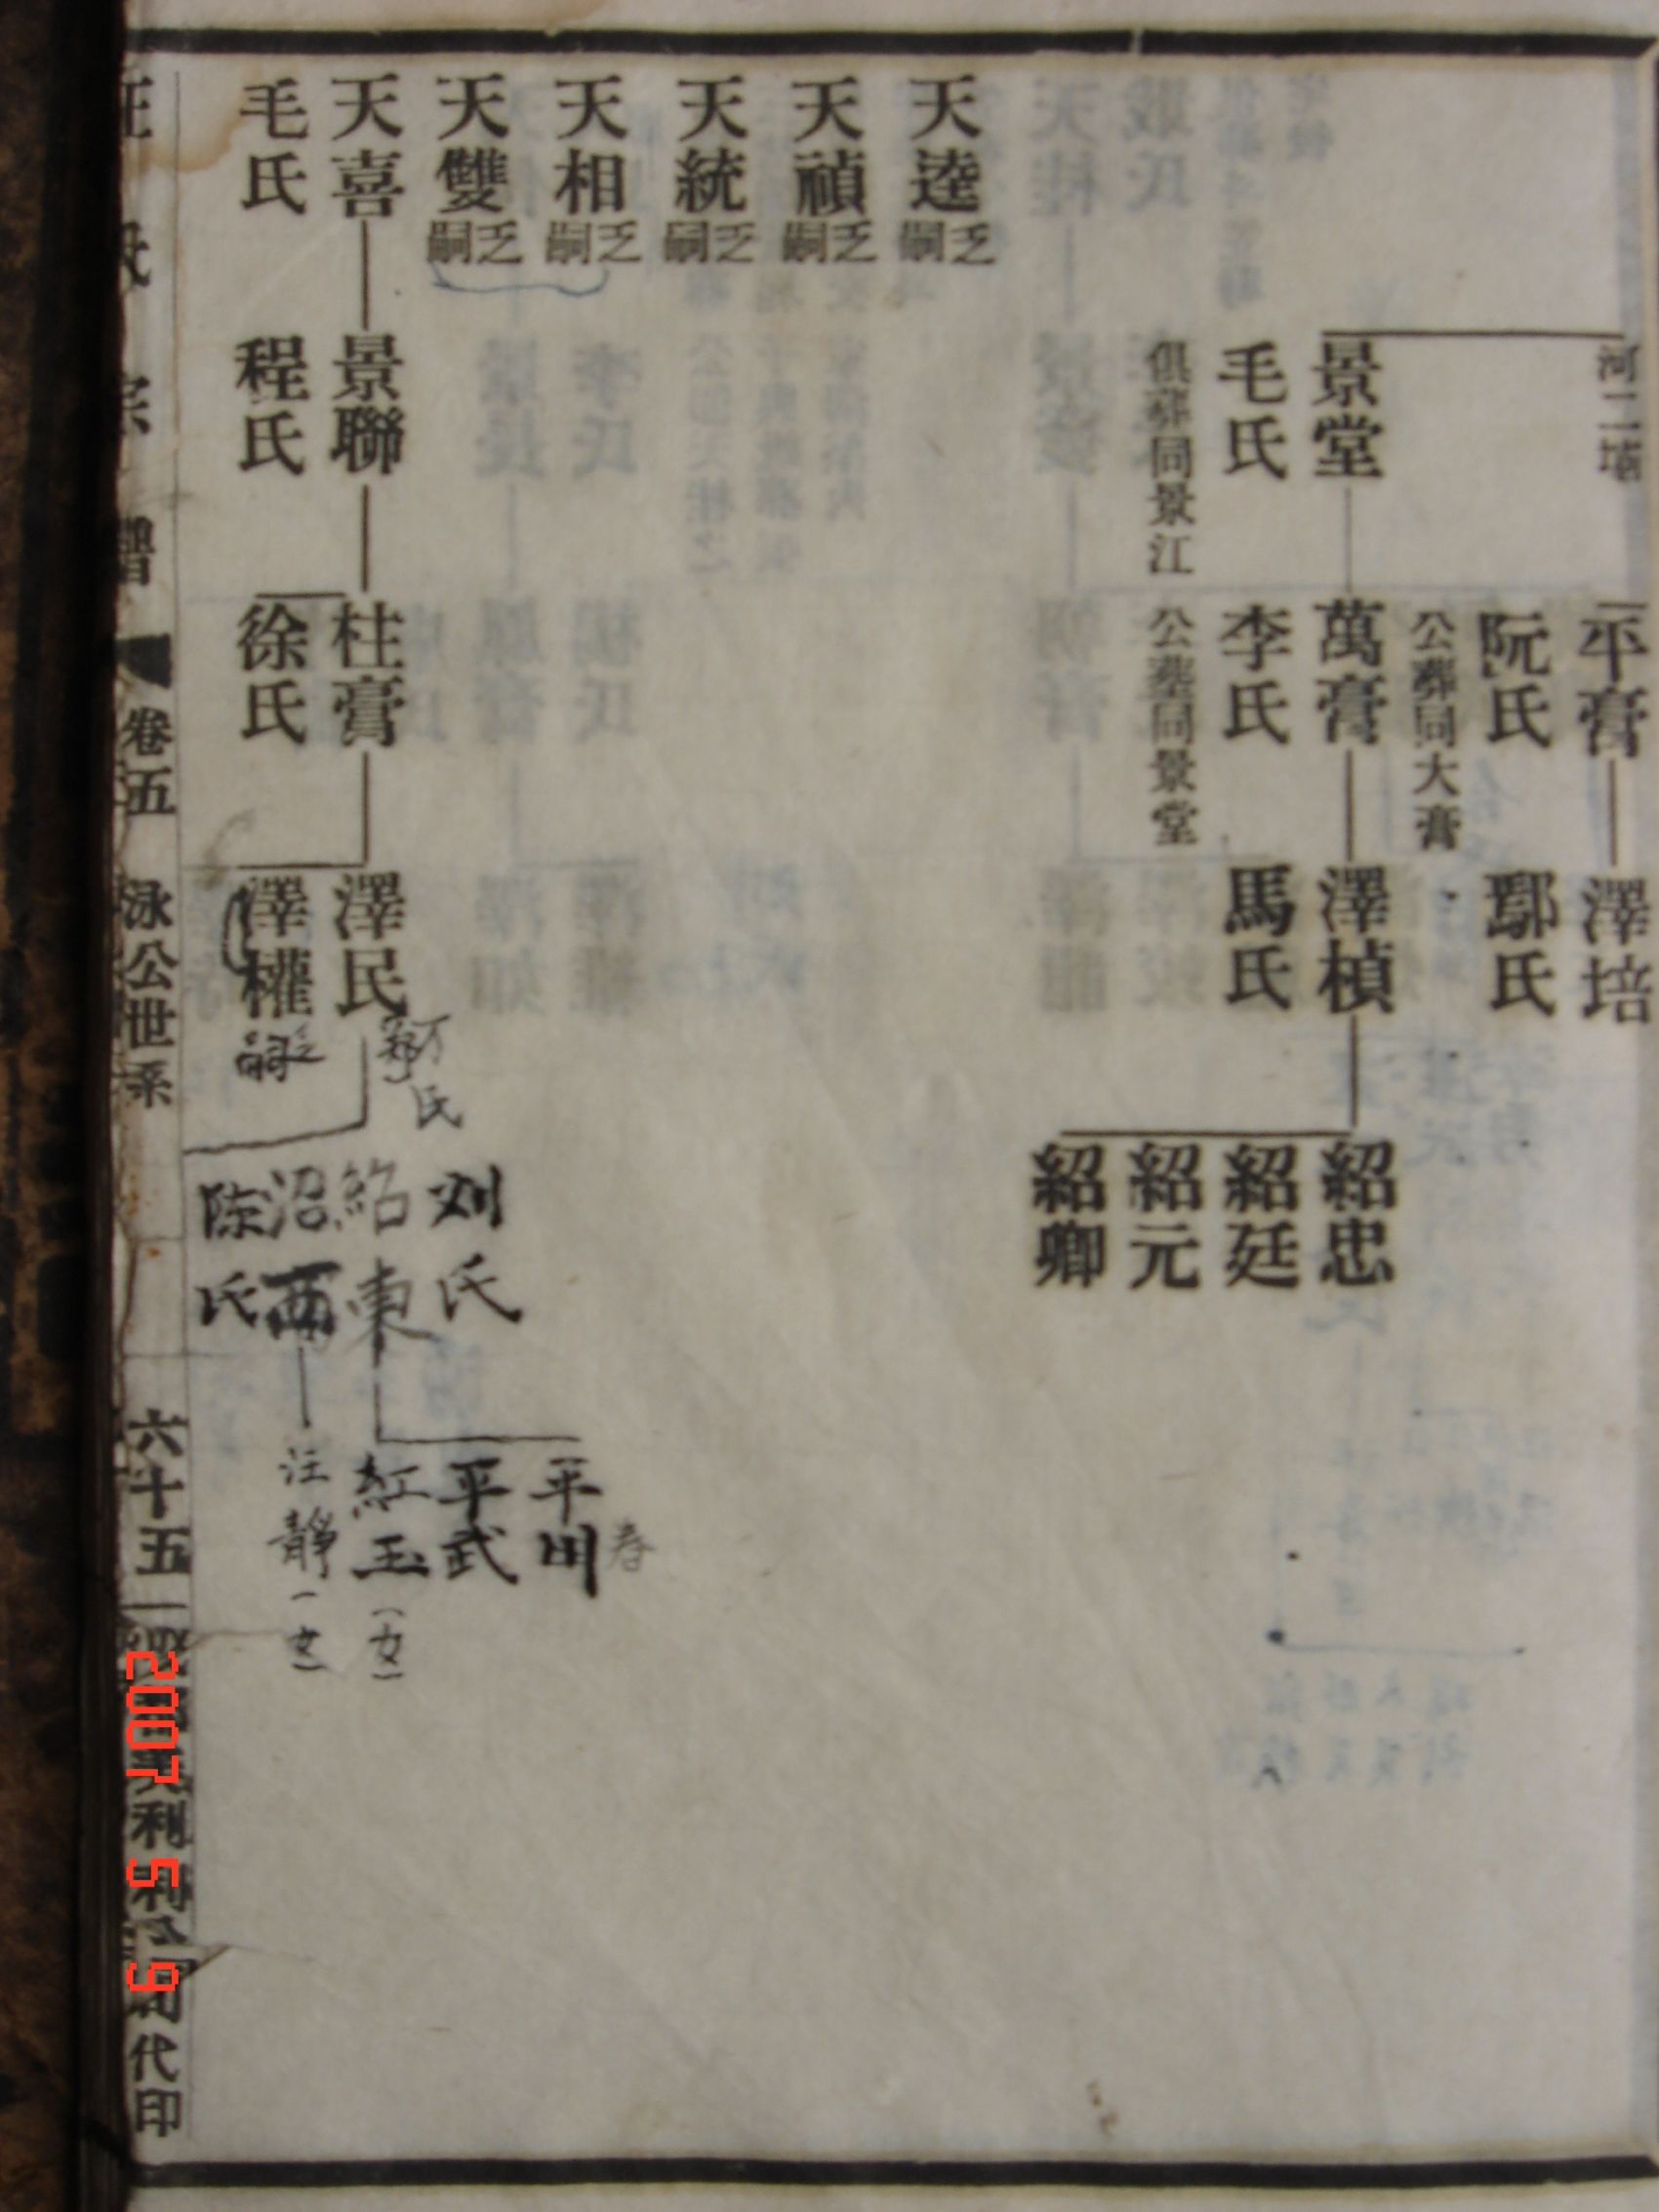 河二壋
平膏
阮氏
公葬同大膏
澤培
鄢氏
景堂
毛氏
俱葬同景江
萬膏
李氏
公塟同景堂
澤楨
馬氏
紹忠
紹廷
紹元
紹卿
天逵
乏嗣
天禎
乏嗣
天統
乏嗣
天相
乏嗣
天雙
乏嗣
天喜
毛氏
景聯
程氏
柱膏
徐氏
澤民
澤權
乏嗣
氏
刘氏
紹東
沼西
陈氏
平
春
平武
紅玉
(女)
汪靜
(女)
卷五
泳公世系
六十五
代印
2007 5 9